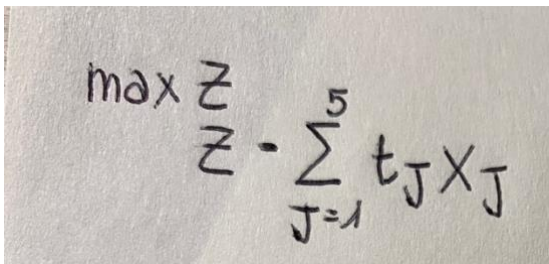 max Z
Z - \sum_{J=1}^{5} t_J x_J